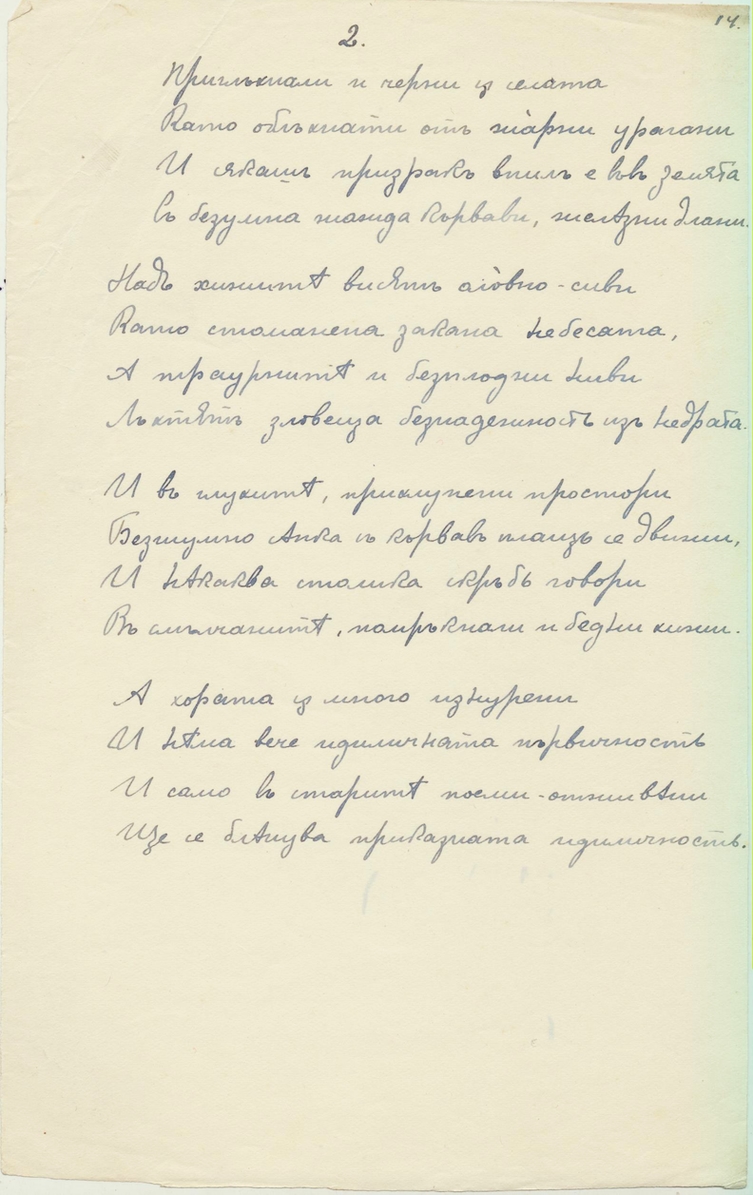 14.
2.
Приглъхнали и черни сѫ селата
Като облъхнати отъ жарки урагани
И сякашъ призракъ впилъ е въвъ земята
Съ безумна жажда кървави, желѣзни длани.
Надъ хижитѣ висятъ оловно-сиви
Като стоманена закана небесата,
А траурнитѣ и безплодни ниви
Лъхтятъ зловеща безнадежность изъ недрата.
И въ глухитѣ, приклупени простори
Безшумно сѣнка съ кървавъ плащъ се движи,
И нѣкаква столика скръбь говори
Въ смълчанитѣ, помръкнали и бедни хижи.
А хората сѫ много изнурени
И нѣма вече идиличната първичность
И само въ старитѣ поеми-отживѣни
Ще се блѣнува приказната идиличность.